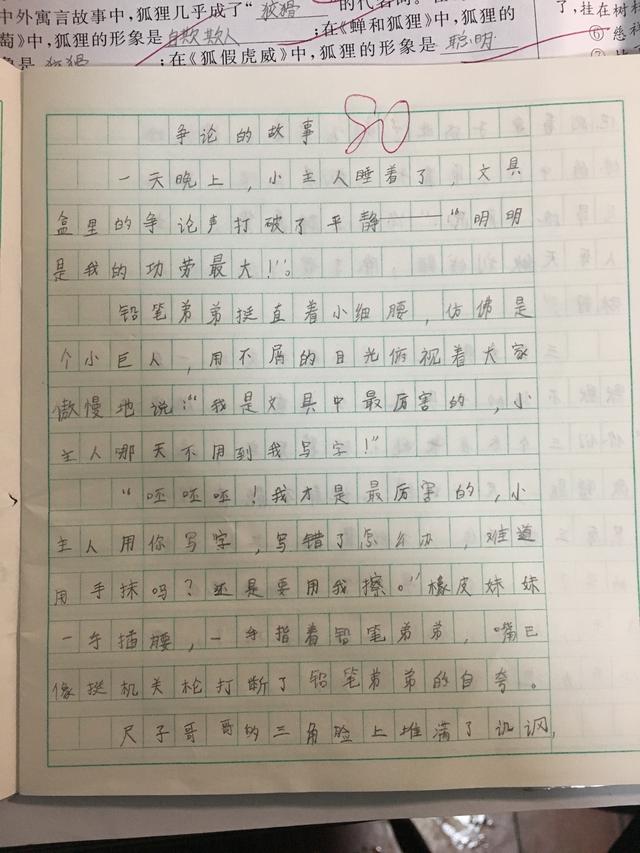 中外寓言故事中,狐狸几乎成了“狡猾的代名词。在《
萄》中,狐狸的形象是自欺欺人;在《蝉和狐狸》中,狐狸的
象是狡猾;在《狐假虎威》中,狐狸的形象是聪明
了,挂在树
⑥“慈
争论的故事
80
一天晚上,小主人睡着了,文具
盒里的争论声打破了平静——“明明
是我的功劳最大!”。
铅笔弟弟挺直着小细腰,仿佛是
个小巨人,用不屑的目光俯视着大家
傲慢地说:“我是文具中最厉害的,小
主人哪天不用到我写字!”
“呸呸呸!我才是最厉害的,小
主人用你写字,写错了怎么办,难道
用手抹吗?还是要用我擦。”橡皮妹妹
一手插腰,一手指着铅笔弟弟,嘴巴
像挺机关枪打断了铅笔弟弟的自夸。
尺子哥哥的三角脸上堆满了讥讽,